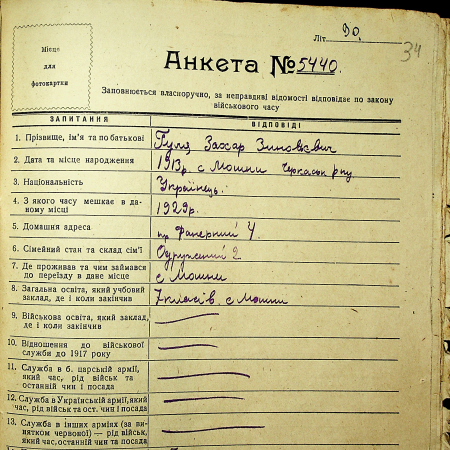 Літ. 90.
34
Місце
для
фотокартки
Анкета № 5440.
Заповнюється власноручно, за неправдиві відомості відповідає по закону
військового часу
ЗАПИТАННЯ ВІДПОВІДІ
1. Прізвище, ім'я та по батькові Гуля Захар Зиновієвич
2. Дата та місце народження 1913р. с Мошни Черкаськ р-ну
3. Національність Українець.
4. З якого часу мешкає в да-
ному місці 1929р.
5. Домашня адреса пр Фанерний 4.
6. Сімейний стан та склад сім'ї Одружений 2
7. Де проживав та чим займався
до переїзду в дане місце с Мошни
8. Загальна освіта, який учбовий
заклад, де і коли закінчив 7 класів. с Мошни
9. Військова освіта, який заклад,
де і коли закінчив
10. Відношення до військової
служби до 1917 року
11. Служба в б. царській армії,
який час, рід військ та
останній чин і посада
12. Служба в Українській армії, який
час, рід військ та ост. чин і посада
13. Служба в інших арміях (за ви-
нятком червоної) — рід військ,
який час, останній чин та посада